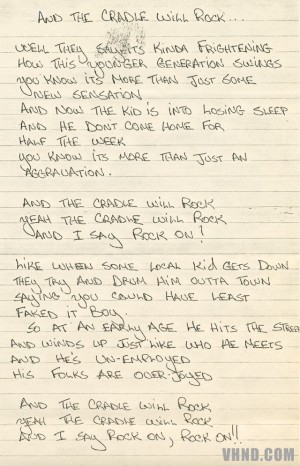 AND THE CRADLE WILL ROCK...
WELL THEY SAY ITS KINDA FRIGHTENING
HOW THIS YOUNGER GENERATION SWINGS
YOU KNOW ITS MORE THAN JUST SOME
NEW SENSATION
AND NOW THE KID IS INTO LOSING SLEEP
AND HE DONT COME HOME FOR
HALF THE WEEK
YOU KNOW ITS MORE THAN JUST AN
AGGRAVATION.
AND THE CRADLE WILL ROCK
YEAH THE CRADLE WILL ROCK
AND I SAY ROCK ON!
LIKE WHEN SOME LOCAL KID GETS DOWN
THEY TRY AND DRUM HIM OUTTA TOWN
SAYING YOU COULD HAVE LEAST
FAKED IT BOY.
SO AT AN EARLY AGE HE HITS THE STREET
AND WINDS UP JUST LIKE WHO HE MEETS
AND HE'S UN-EMPLOYED
HIS FOLKS ARE OVER-JOYED
AND THE CRADLE WILL ROCK
YEAH THE CRADLE WILL ROCK
AND I SAY ROCK ON, ROCK ON!!
VHND.COM